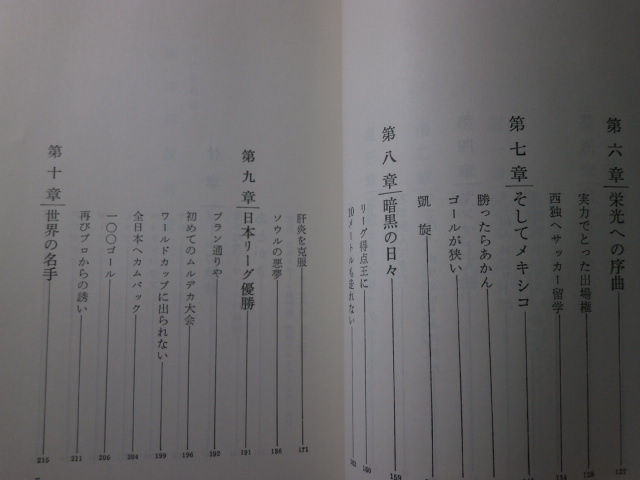 第六章 栄光への序曲 127
実力でとった出場権 128
西独へサッカー留学 134
第七章 そしてメキシコ
勝ったらあかん
ゴールが狭い
凱旋
第八章 暗黒の日々 159
リーグ得点王に 160
10メートルも走れない
肝炎を克服 171
ソウルの悪夢 186
第九章 日本リーグ優勝 191
プラン通りや 192
初めてのムルデカ大会 196
ワールドカップに出られない 199
全日本へカムバック 204
一〇〇ゴール 206
再びプロからの誘い 211
第十章 世界の名手 215